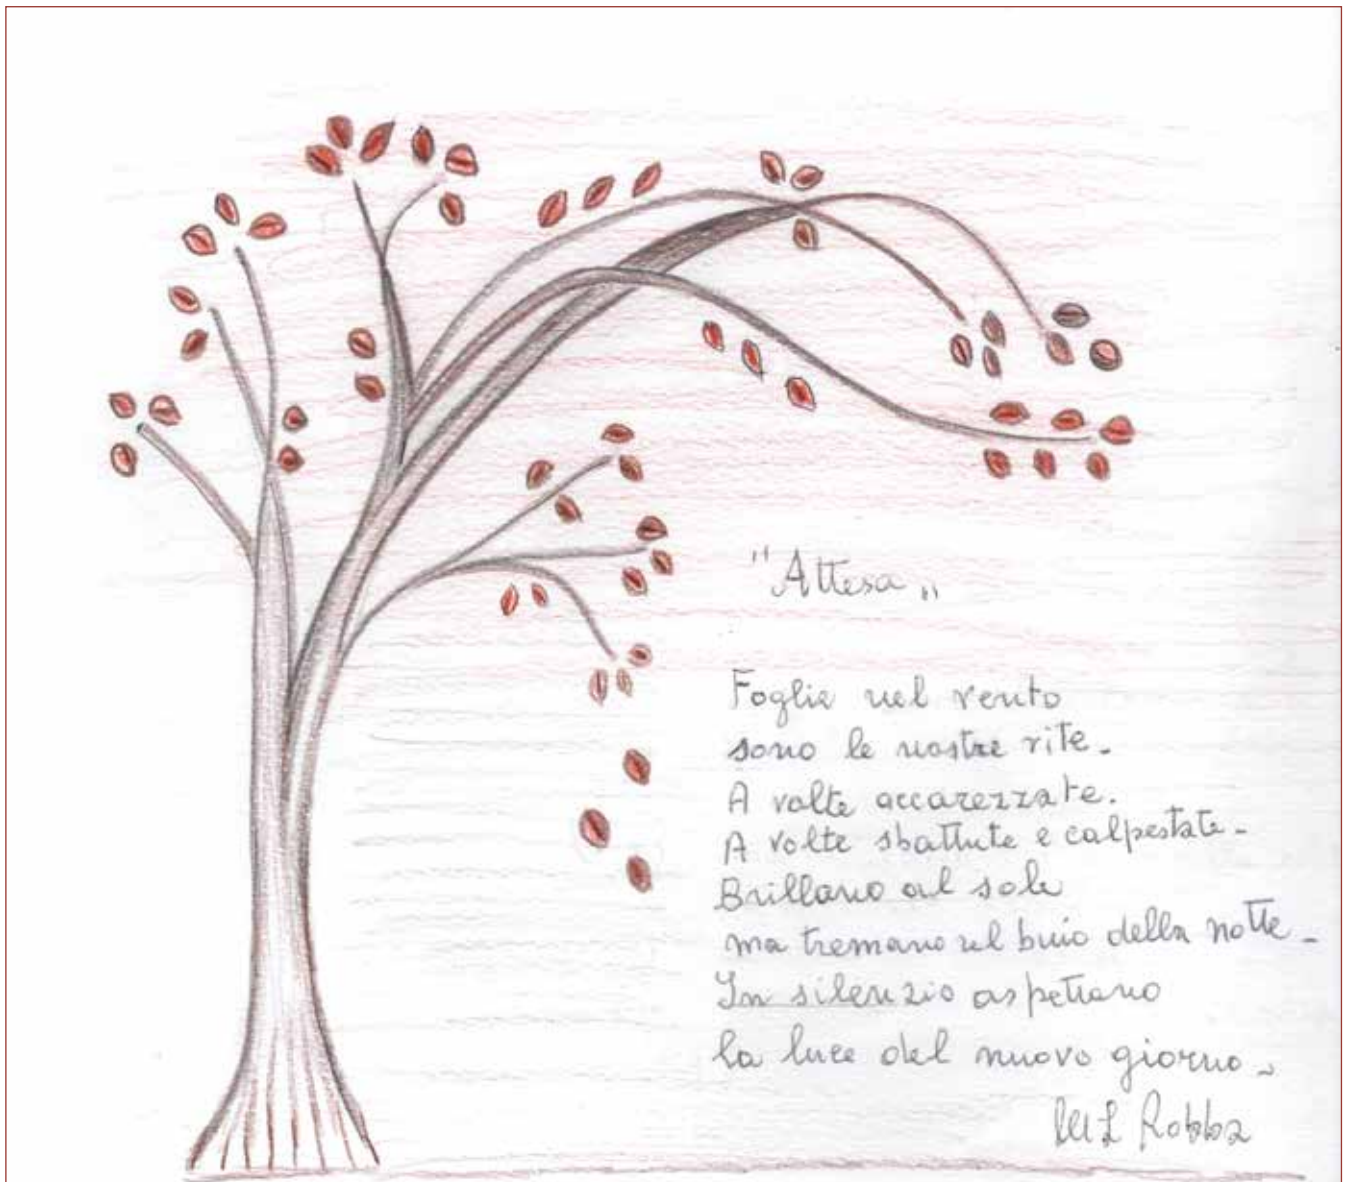 "Attesa"
Foglie nel vento
sono le nostre vite.
A volte accarezzate.
A volte sbattute e calpestate.
Brillano al sole
ma tremano nel buio della notte.
In silenzio aspettano
la luce del nuovo giorno.
ML Robba